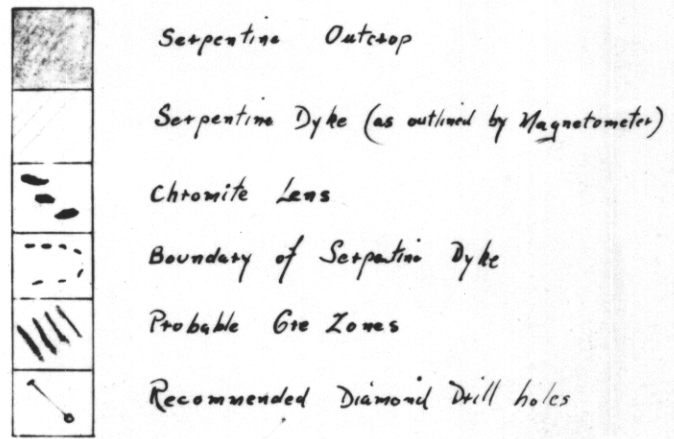 Serpentine Outcrop
Serpentine Dyke (as outlined by Magnetometer)
Chromite Lens
Boundary of Serpentine Dyke
Probable Ore Zones
Recommended Diamond Drill holes